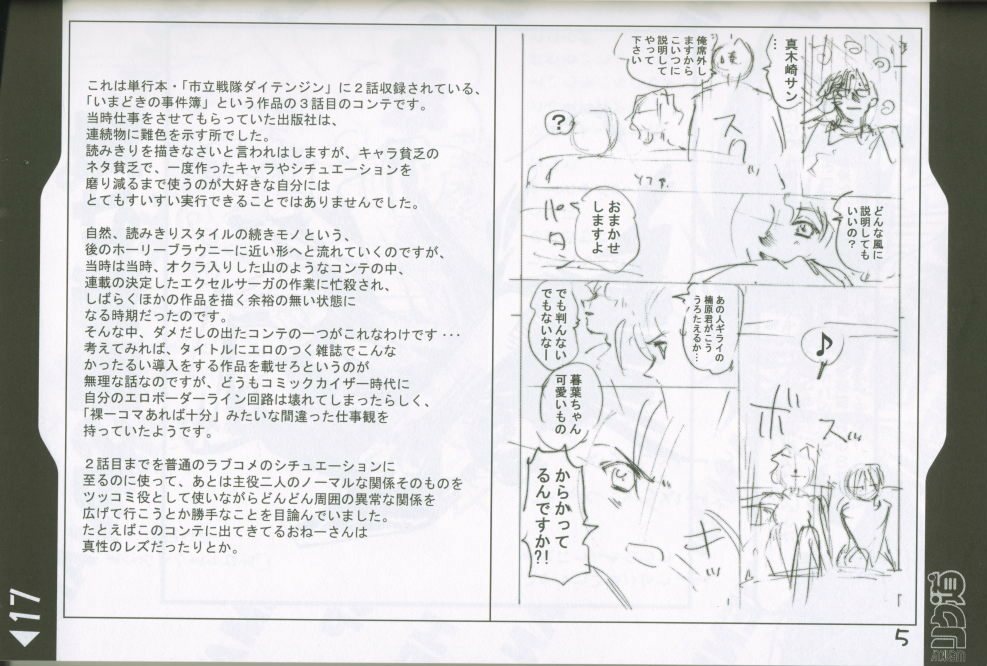 これは単行本・「市立戦隊ダイテンジン」に２話収録されている、
「いまどきの事件簿」という作品の３話目のコンテです。
当時仕事をさせてもらっていた出版社は、
連続物に難色を示す所でした。
読みきりを描きなさいと言われはしますが、キャラ貧乏の
ネタ貧乏で、一度作ったキャラやシチュエーションを
磨り減るまで使うのが大好きな自分には
とてもすいすい実行できることではありませんでした。
自然、読みきりスタイルの続きモノという、
後のホーリーブラウニーに近い形へと流れていくのですが、
当時は当時、オクラ入りした山のようなコンテの中、
連載の決定したエクセルサーガの作業に忙殺され、
しばらくほかの作品を描く余裕の無い状態に
なる時期だったのです。
そんな中、ダメだしの出たコンテの一つがこれなわけです・・・
考えてみれば、タイトルにエロのつく雑誌でこんな
かったるい導入をする作品を載せろというのが
無理な話なのですが、どうもコミックカイザー時代に
自分のエロボーダーライン回路は壊れてしまったらしく、
「裸一コマあれば十分」みたいな間違った仕事観を
持っていたようです。
２話目までを普通のラブコメのシチュエーションに
至るのに使って、あとは主役二人のノーマルな関係そのものを
ツッコミ役として使いながらどんどん周囲の異常な関係を
広げて行こうとか勝手なことを目論んでいました。
たとえばこのコンテに出てきてるおねーさんは
真性のレズだったりとか。
真木崎サン
…
俺席外し
ますから
こいつに
説明して
やって
下さい
スッ
?
ソファ
どんな風に
説明しても
いいの？
おまかせ
しますよ
ペコ
♪
ボ
スッ
あの人ギライの
楠原君がこう
うろたえるか…
でも判んない
でもないなー
暮葉ちゃん
可愛いもの
からかって
るんですか?!
キッ
5
17